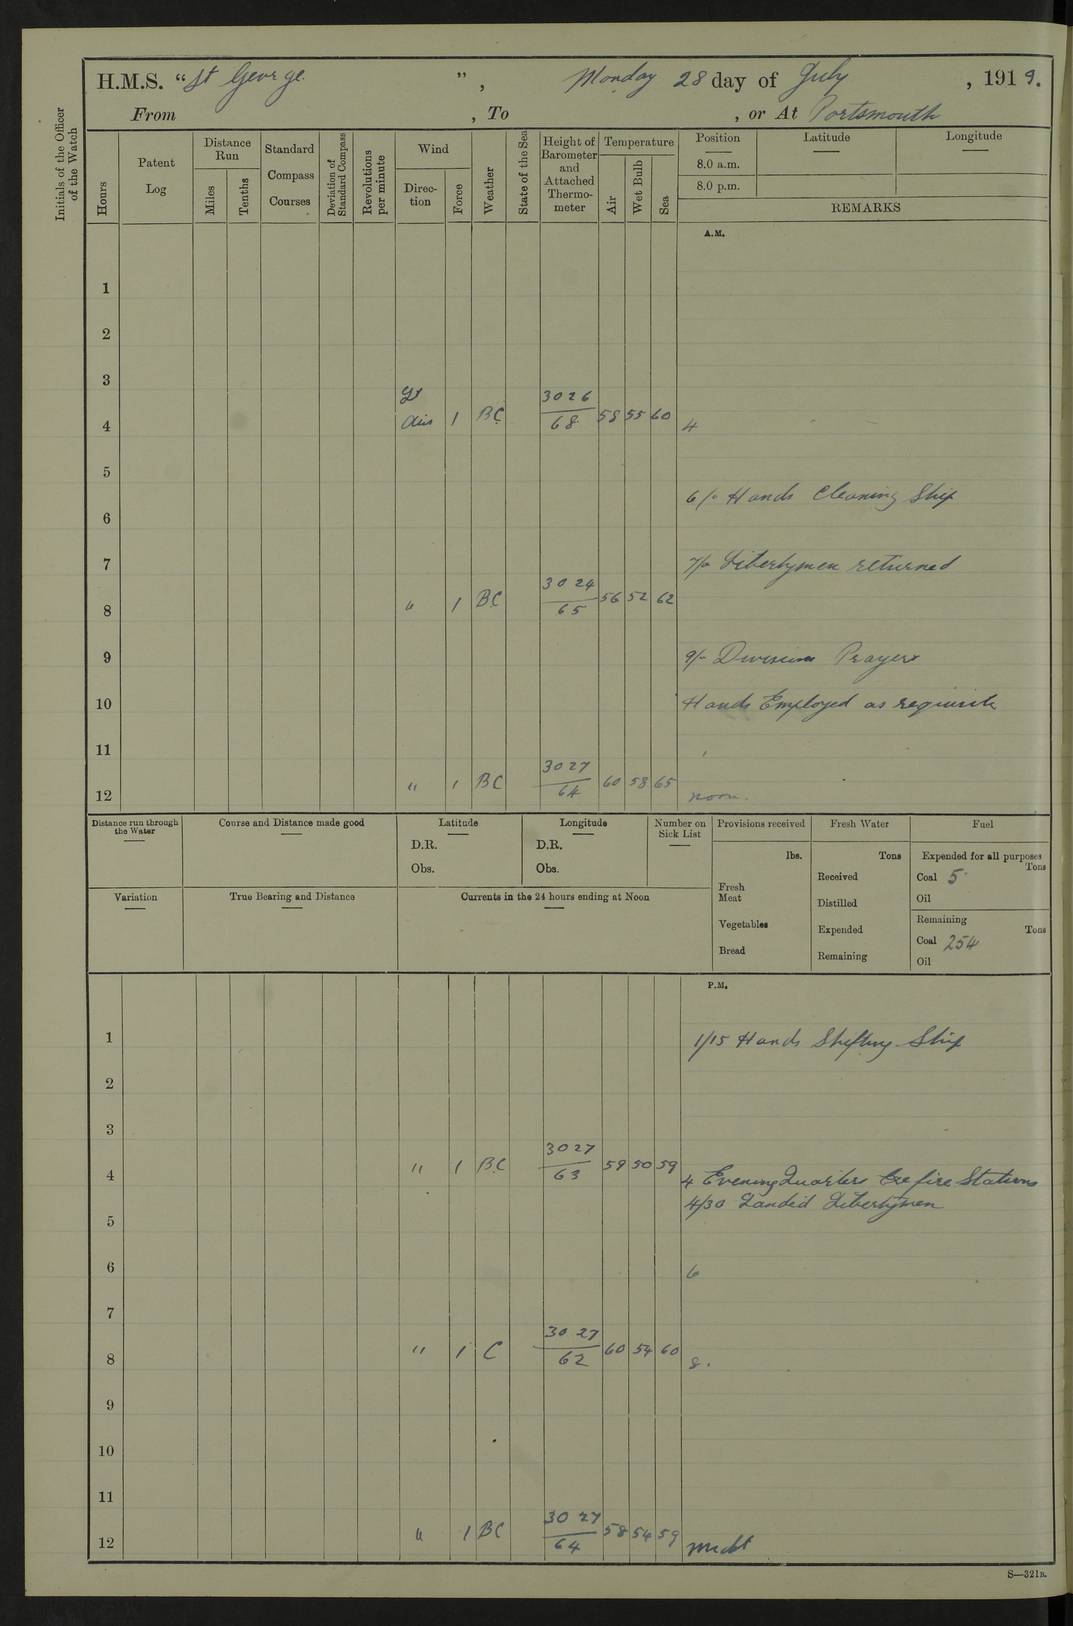 H.M.S. "St George", Monday 28 day of July, 1919.
From , To , or At Portsmouth
Initials of the Officer of the Watch
Hours
Patent Log
Distance Run
Miles
Tenths
Standard Compass Courses
Deviation of Standard Compass
Revolutions per minute
Wind
Direction
Force
Weather
State of the Sea
Height of Barometer and Attached Thermometer
Temperature
Air
Wet Bulb
Sea
Position
8.0 a.m.
8.0 p.m.
Latitude
Longitude
REMARKS
A.M.
1
2
3
4 Lt Airs 1 BC 3026/68 58 55 60 4
5
6 6/- Hands Cleaning Ship
7 7/- Libertymen returned
8 " 1 BC 3024/65 56 52 62
9 9/- Divisions Prayers
10 Hands Employed as requisite
11
12 " 1 BC 3027/64 60 58 65 noon.
Distance run through the Water
Course and Distance made good
Latitude
D.R.
Obs.
Longitude
D.R.
Obs.
Number on Sick List
Provisions received
lbs.
Fresh Meat
Vegetables
Bread
Fresh Water
Tons
Received
Distilled
Expended
Remaining
Fuel
Expended for all purposes
Tons
Coal 5
Oil
Remaining
Tons
Coal 254
Oil
Variation
True Bearing and Distance
Currents in the 24 hours ending at Noon
P.M.
1 1/15 Hands Ship
2
3
4 " 1 BC 3027/63 59 50 59 4 Evening Quarters fire Stations
4/30 Landed Libertymen
5
6 6
7
8 " 1 C 3027/62 60 54 60 8.
9
10
11
12 " 1 BC 3027/64 58 54 59 Midt
S—321B.